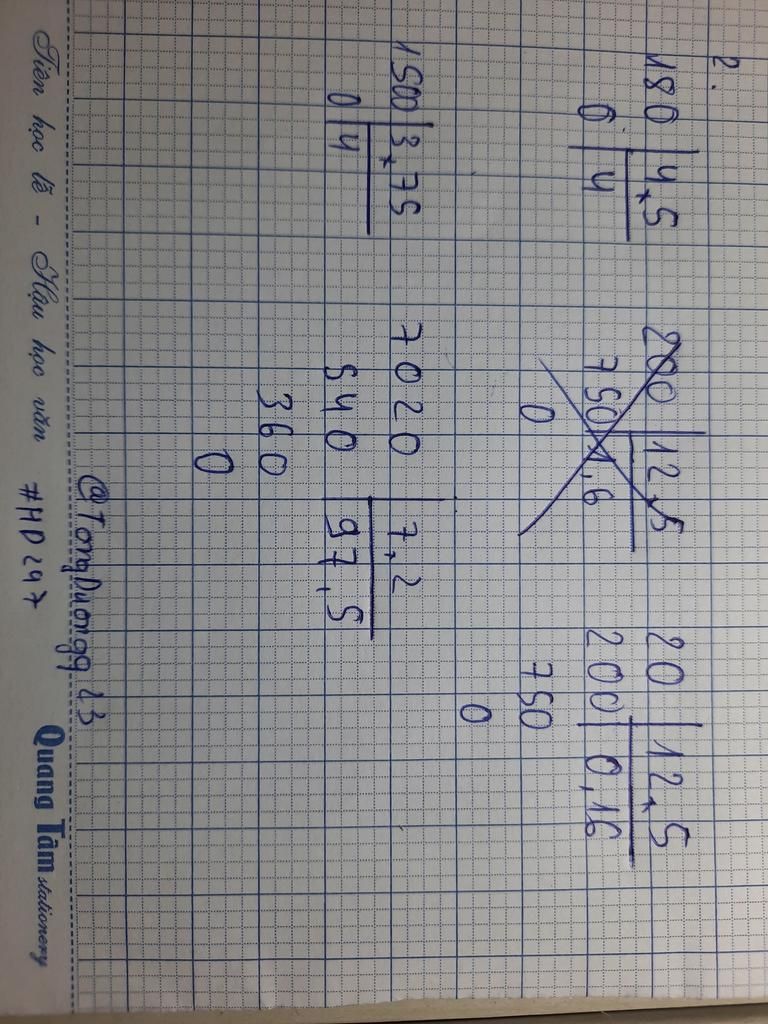 2.
180 | 4,5 200 | 12,5 20 | 12,5
0 | 4 750 | 1,6 200 | 0,16
0 750
0
1500 | 3,75 7020 | 7,2
0 | 4 540 | 97,5
360
0
@TongDuongg23
Tiên học lễ - Hậu học văn #HD247 Quang Tâm stationery